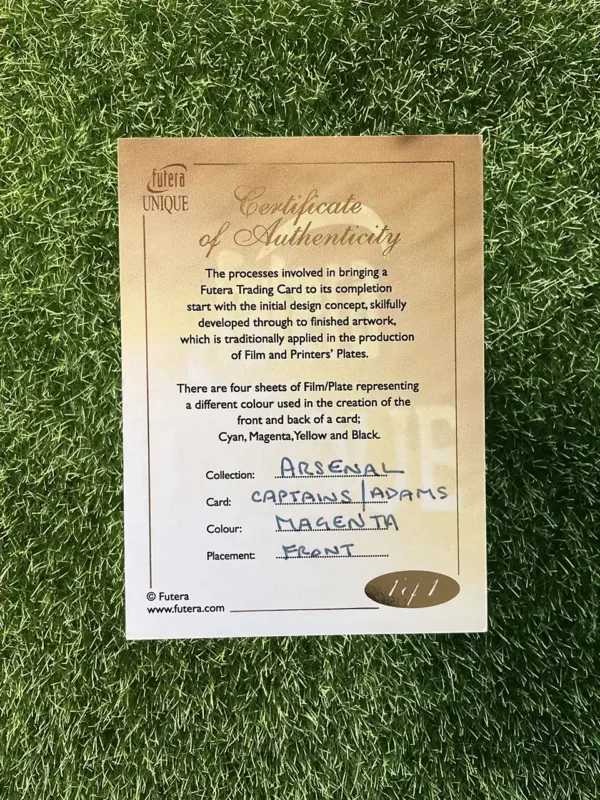 futera
UNIQUE
Certificate
of Authenticity
The processes involved in bringing a
Futera Trading Card to its completion
start with the initial design concept, skilfully
developed through to finished artwork,
which is traditionally applied in the production
of Film and Printers' Plates.
There are four sheets of Film/Plate representing
a different colour used in the creation of the
front and back of a card;
Cyan, Magenta, Yellow and Black.
Collection: ARSENAL
Card: CAPTAINS/ADAMS
Colour: MAGENTA
Placement: FRONT
1 of 1
© Futera
www.futera.com